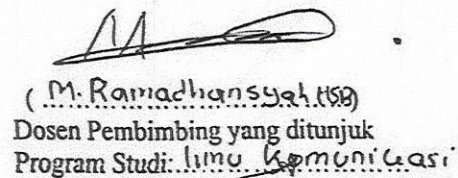 ( M. Ramadhansyah HSB)
Dosen Pembimbing yang ditunjuk
Program Studi: Ilmu Komunikasi